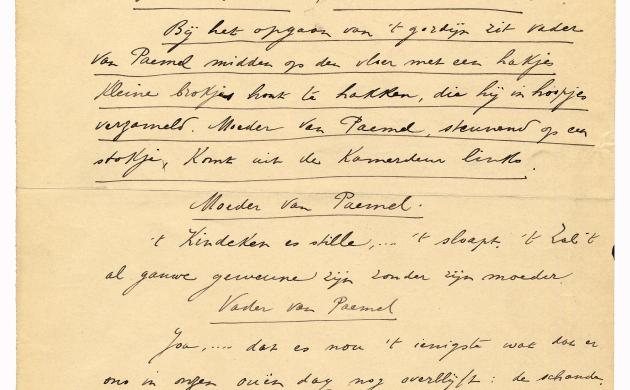 Bij het opgaan van 't gordijn zit vader
van Paemel midden op den vloer met een hakje
kleine brokjes hout te hakken, die hij in hoopjes
verzameld. Moeder van Paemel, steunend op een
stokje, komt uit de Kamerdeur links.
Moeder van Paemel.
't Kindeken es stille,... 't sloapt. 't Zal 't
al gauwe geweune zijn zonder zijn moeder.
Vader van Paemel
Joa,.... dat es nou 't ienigste wat dat er
ons in onzen ouën dag nog overblijft: de schande